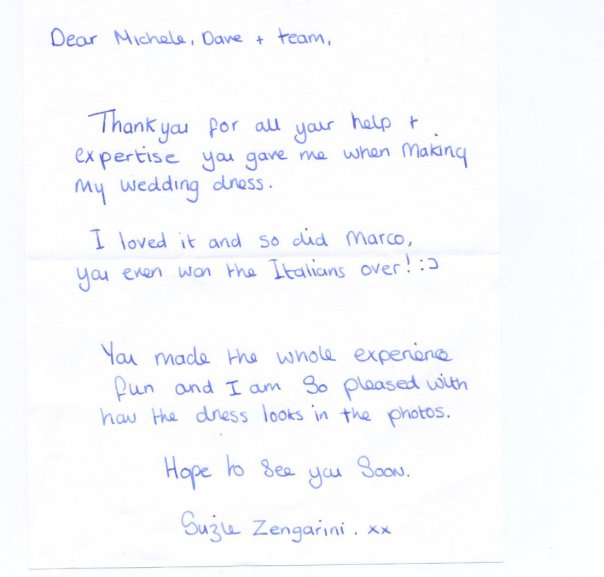 Dear Michele, Dave + team,
Thank you for all your help +
expertise you gave me when making
my wedding dress.
I loved it and so did Marco,
you even won the Italians over! :)
You made the whole experience
fun and I am so pleased with
how the dress looks in the photos.
Hope to see you soon.
Suzie Zengarini. xx